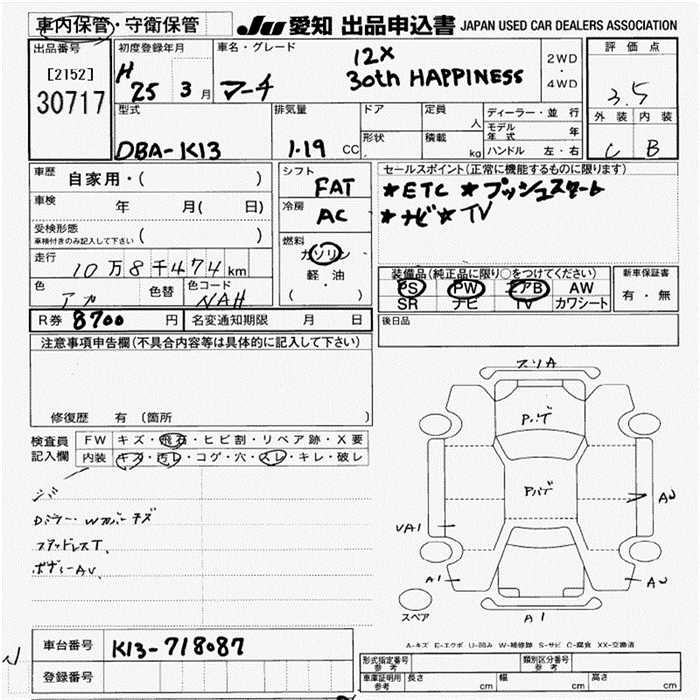 車内保管・守衛保管
JU 愛知 出品申込書 JAPAN USED CAR DEALERS ASSOCIATION
出品番号
[2152]
30717
初度登録年月
H 25 3月
車名・グレード
マーチ
12X
30th HAPPINESS
2WD
・
4WD
評価点
3.5
外装 内装
C B
型式
DBA-K13
排気量
1.19 CC
ドア
形状
定員
人
積載
kg
ディーラー・並 行
モデル年式 年
ハンドル 左・右
車歴 自家用・( )
車検 年 月( 日)
受検形態
車検付きのみ記入して下さい ( )
走行
10万8千474km
色 アカ
色替
色コード NAH
シフト
FAT
冷房
AC
燃料
ガソリン
軽 油
( ・ )
セールスポイント(正常に機能するものに限ります)
★ETC ★プッシュスタート
★ナビ★TV
装備品(純正品に限り○をつけてください)
PS PW エアB AW
SR ナビ TV カワシート
新車保証書
有・無
R券 8700 円
名変通知期限 月 日
後日品
注意事項申告欄(不具合内容等は具体的に記入して下さい)
修復歴 有 (箇所 )
検査員
記入欄
FW キズ・飛石・ヒビ割・リペア跡・X要
内装 キズ・汚レ・コゲ・穴・スレ・キレ・破レ
スリA
Pハゲ
Pハゲ
AU
UA1
A1
AU
A1
スペア
Dミラー・Wカバーキズ
スタッドレスT、
ボディーAU、
A-キズ E-エクボ U-凹み W-補修跡 S-サビ C-腐食 XX-交換済
車台番号 K13-718087
登録番号
形式指定番号
参 考
類別区分番号
参 考
車庫証明用
参 考
長さ cm
幅 cm
高さ cm